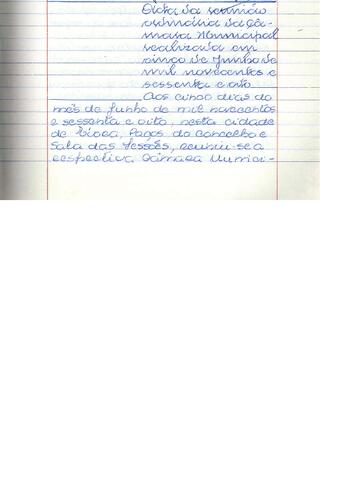 Acta da reunião
ordinária da Câ-
mara Municipal
realizada em
cinco de Junho de
mil novecentos e
sessenta e oito
Aos cinco dias do
mês de Junho de mil novecentos
e sessenta e oito, nesta cidade
de Lisboa, Paços do Concelho e
Sala das Sessões, reuniu-se a
respectiva Câmara Munici-